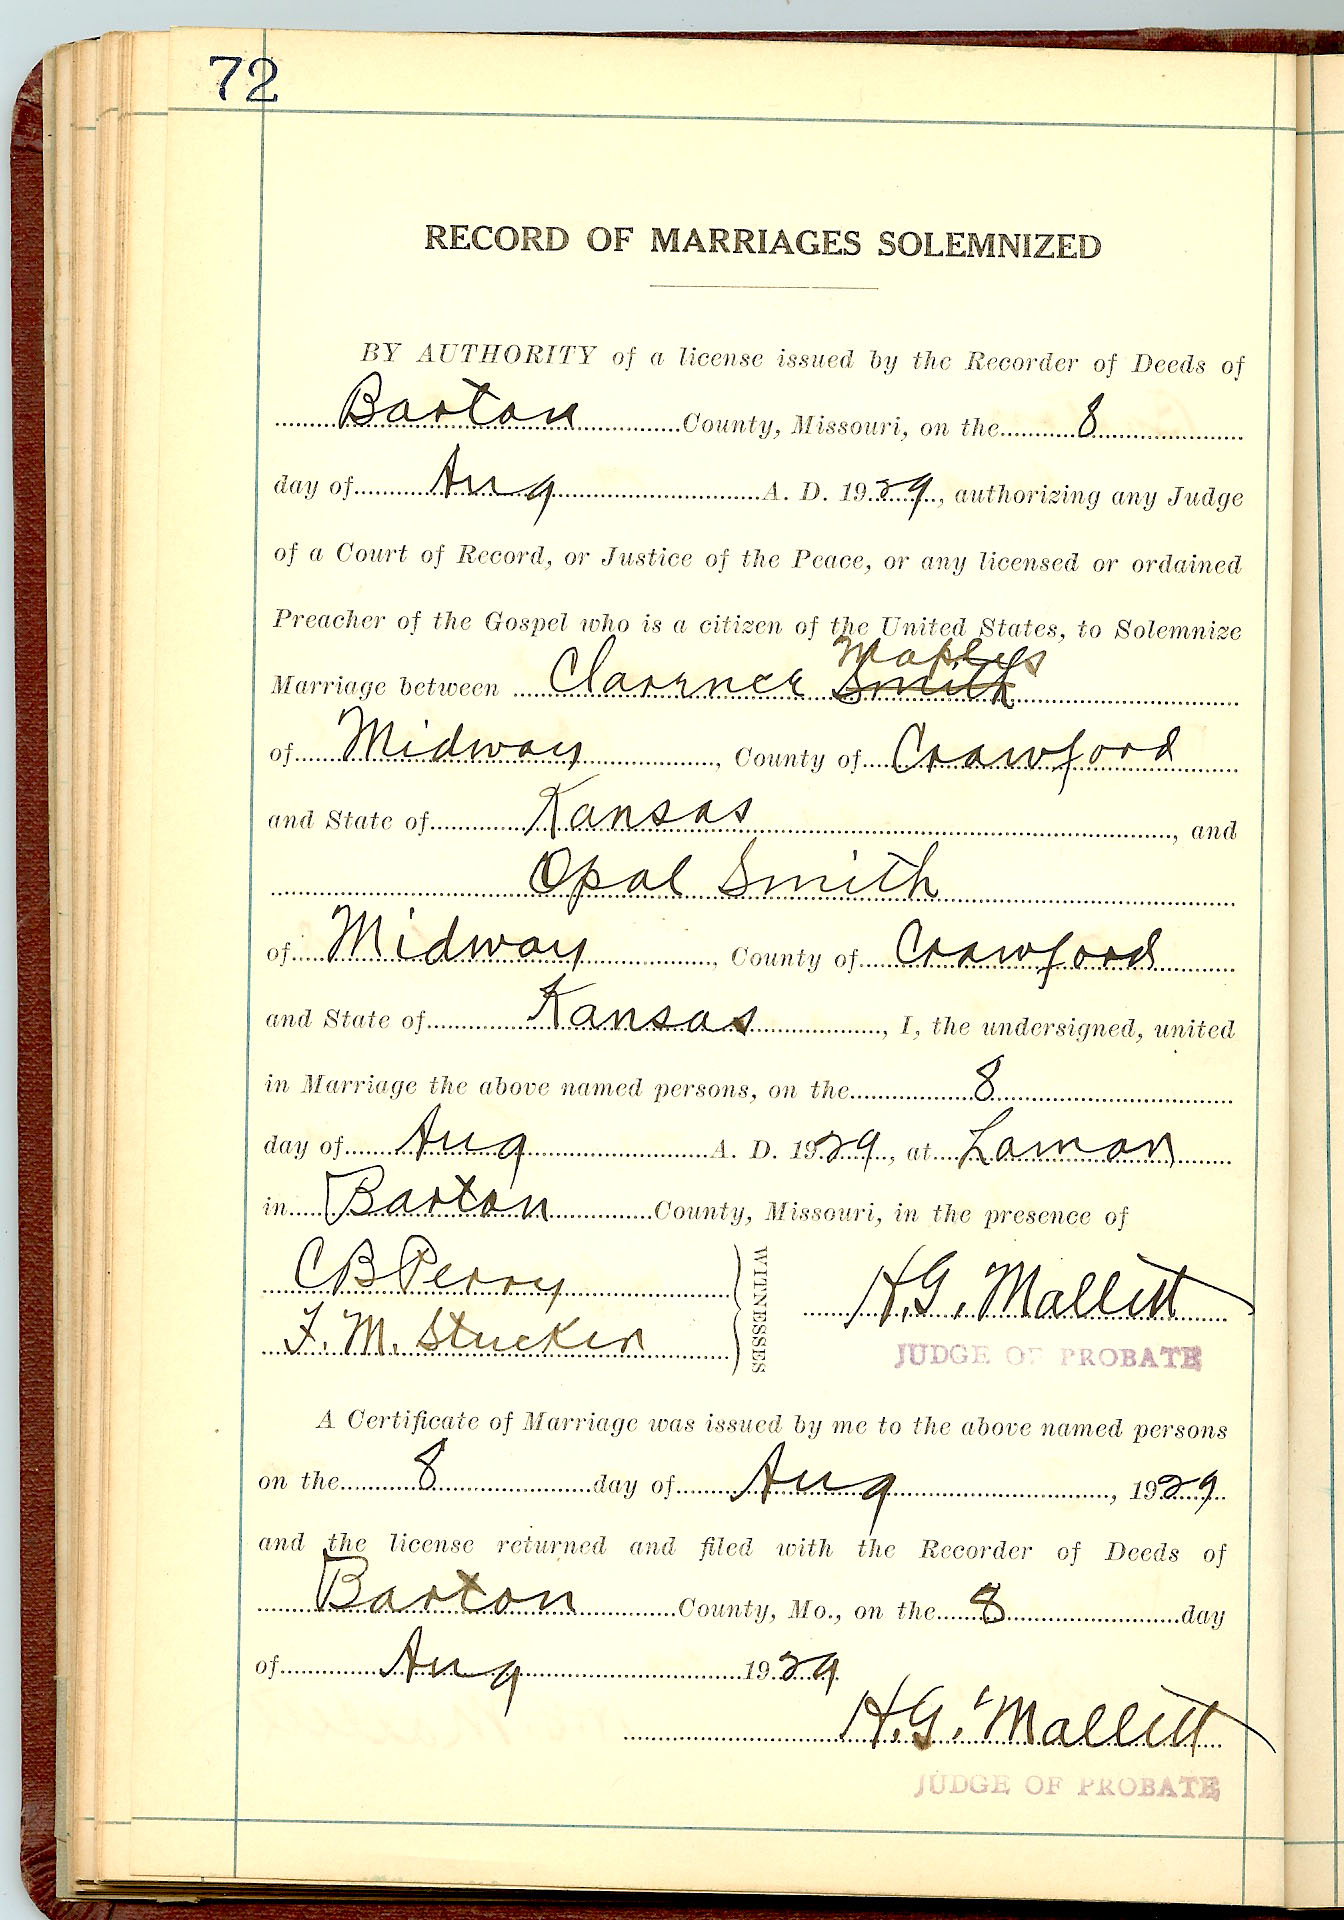 72
RECORD OF MARRIAGES SOLEMNIZED
BY AUTHORITY of a license issued by the Recorder of Deeds of
Barton County, Missouri, on the 8
day of Aug A. D. 1929, authorizing any Judge
of a Court of Record, or Justice of the Peace, or any licensed or ordained
Preacher of the Gospel who is a citizen of the United States, to Solemnize
Maples
Marriage between Clarence Smith
of Midway, County of Crawford
and State of Kansas, and
Opal Smith
of Midway, County of Crawford
and State of Kansas, I, the undersigned, united
in Marriage the above named persons, on the 8
day of Aug A. D. 1929, at Lamar
in Barton County, Missouri, in the presence of
C B Perry
F. M. Stucker
WITNESSES
H. G. Mallett
JUDGE OF PROBATE
A Certificate of Marriage was issued by me to the above named persons
on the 8 day of Aug, 1929
and the license returned and filed with the Recorder of Deeds of
Barton County, Mo., on the 8 day
of Aug 1929
H. G. Mallett
JUDGE OF PROBATE